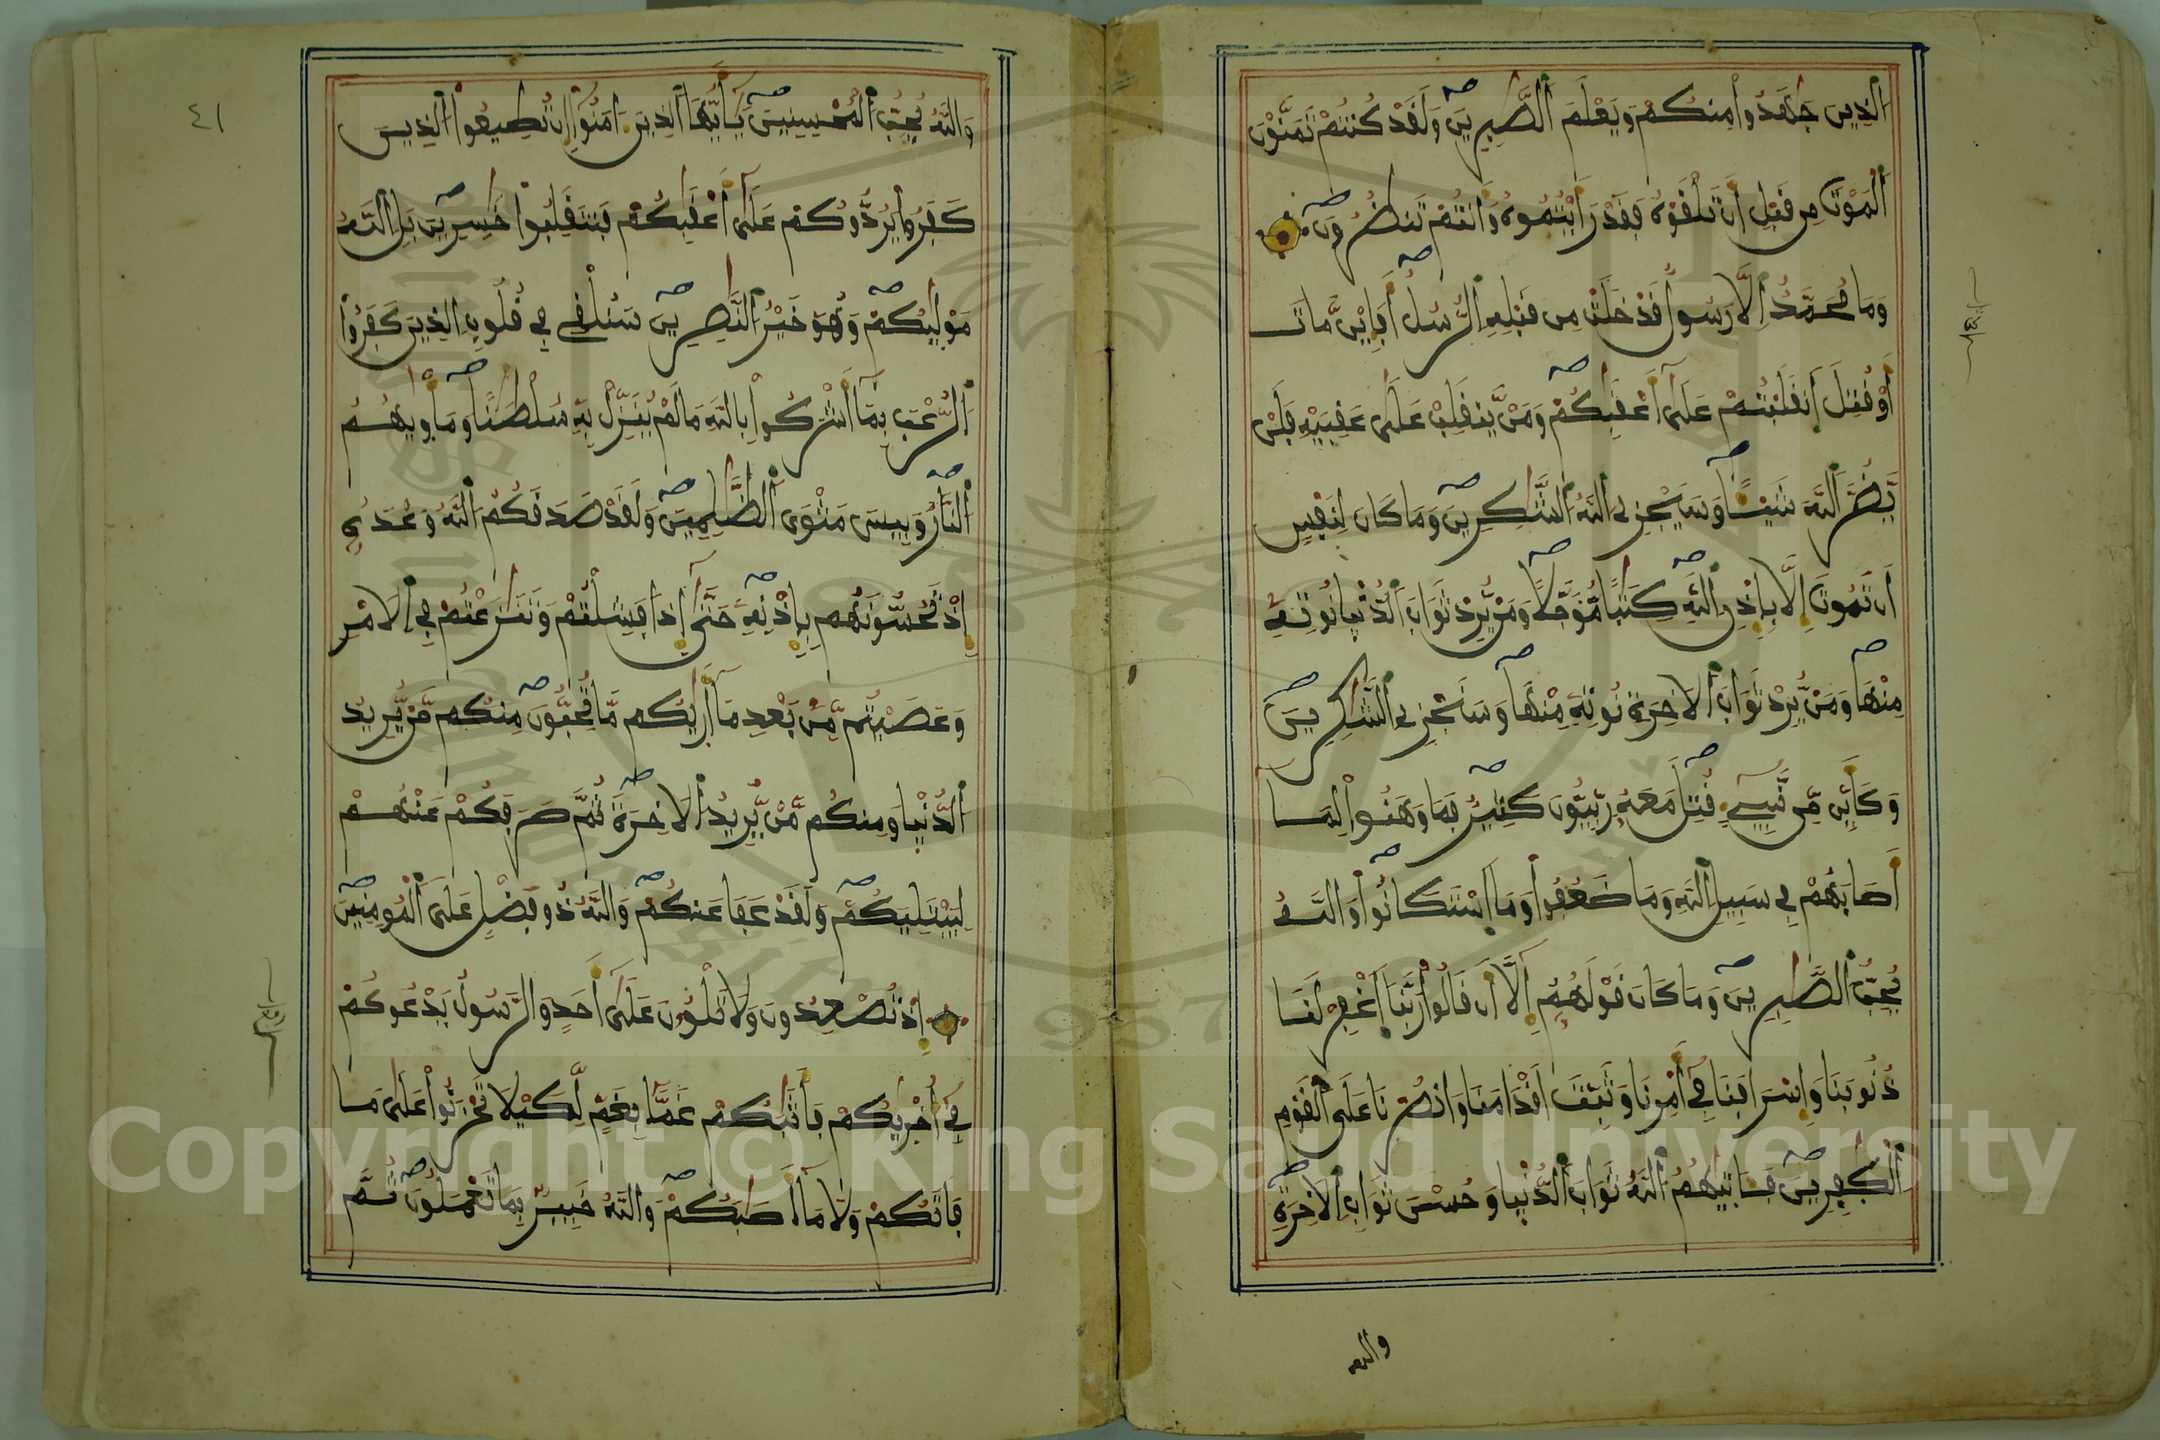 الذين جهدوا منكم ويعلم الصبرين ولقد كنتم تمنون
الموت من قبل أن تلقوه فقد رأيتموه وأنتم تنظرون
وما محمد إلا رسول قد خلت من قبله الرسل أفإين مات
أو قتل انقلبتم على أعقبكم ومن ينقلب على عقبيه فلن
يضر الله شيئا وسيجزي الله الشكرين وما كان لنفس
أن تموت إلا بإذن الله كتبا مؤجلا ومن يرد ثواب الدنيا نوته
منها ومن يرد ثواب الاخرة نوته منها وسنجزي الشكرين
وكأين من نبيء قتل معه ربيون كثير فما وهنوا لما
أصابهم في سبيل الله وما ضعفوا وما استكانوا والله
يحب الصبرين وما كان قولهم إلا أن قالوا ربنا اغفر لنا
ذنوبنا وإسرافنا في أمرنا وثبت أقدامنا وانصرنا على القوم
الكفرين فـاتيهم الله ثواب الدنيا وحسن ثواب الاخرة
والله
٤١
والله يحب المحسنين يأيها الذين امنوا إن تطيعوا الذين
كفروا يردوكم على أعقبكم فتنقلبوا خسرين بل الله
موليكم وهو خير النصرين سنلقي في قلوب الذين كفروا
الرعب بما أشركوا بالله ما لم ينزل به سلطنا ومأويهم
النار وبيس مثوى الظلمين ولقد صدقكم الله وعده
إذ تحسونهم بإذنه حتى إذا فشلتم وتنزعتم في الامر
وعصيتم من بعد ما أريكم ما تحبون منكم من يريد
الدنيا ومنكم من يريد الاخرة ثم صرفكم عنهم
ليبتليكم ولقد عفا عنكم والله ذو فضل على المومنين
إذ تصعدون ولا تلون على أحد والرسول يدعوكم
في أخريكم فأثبكم غما بغم لكيلا تحزنوا على ما
فاتكم ولا ما أصبكم والله خبير بما تعملون ثم
Copyright © King Saud University
1957